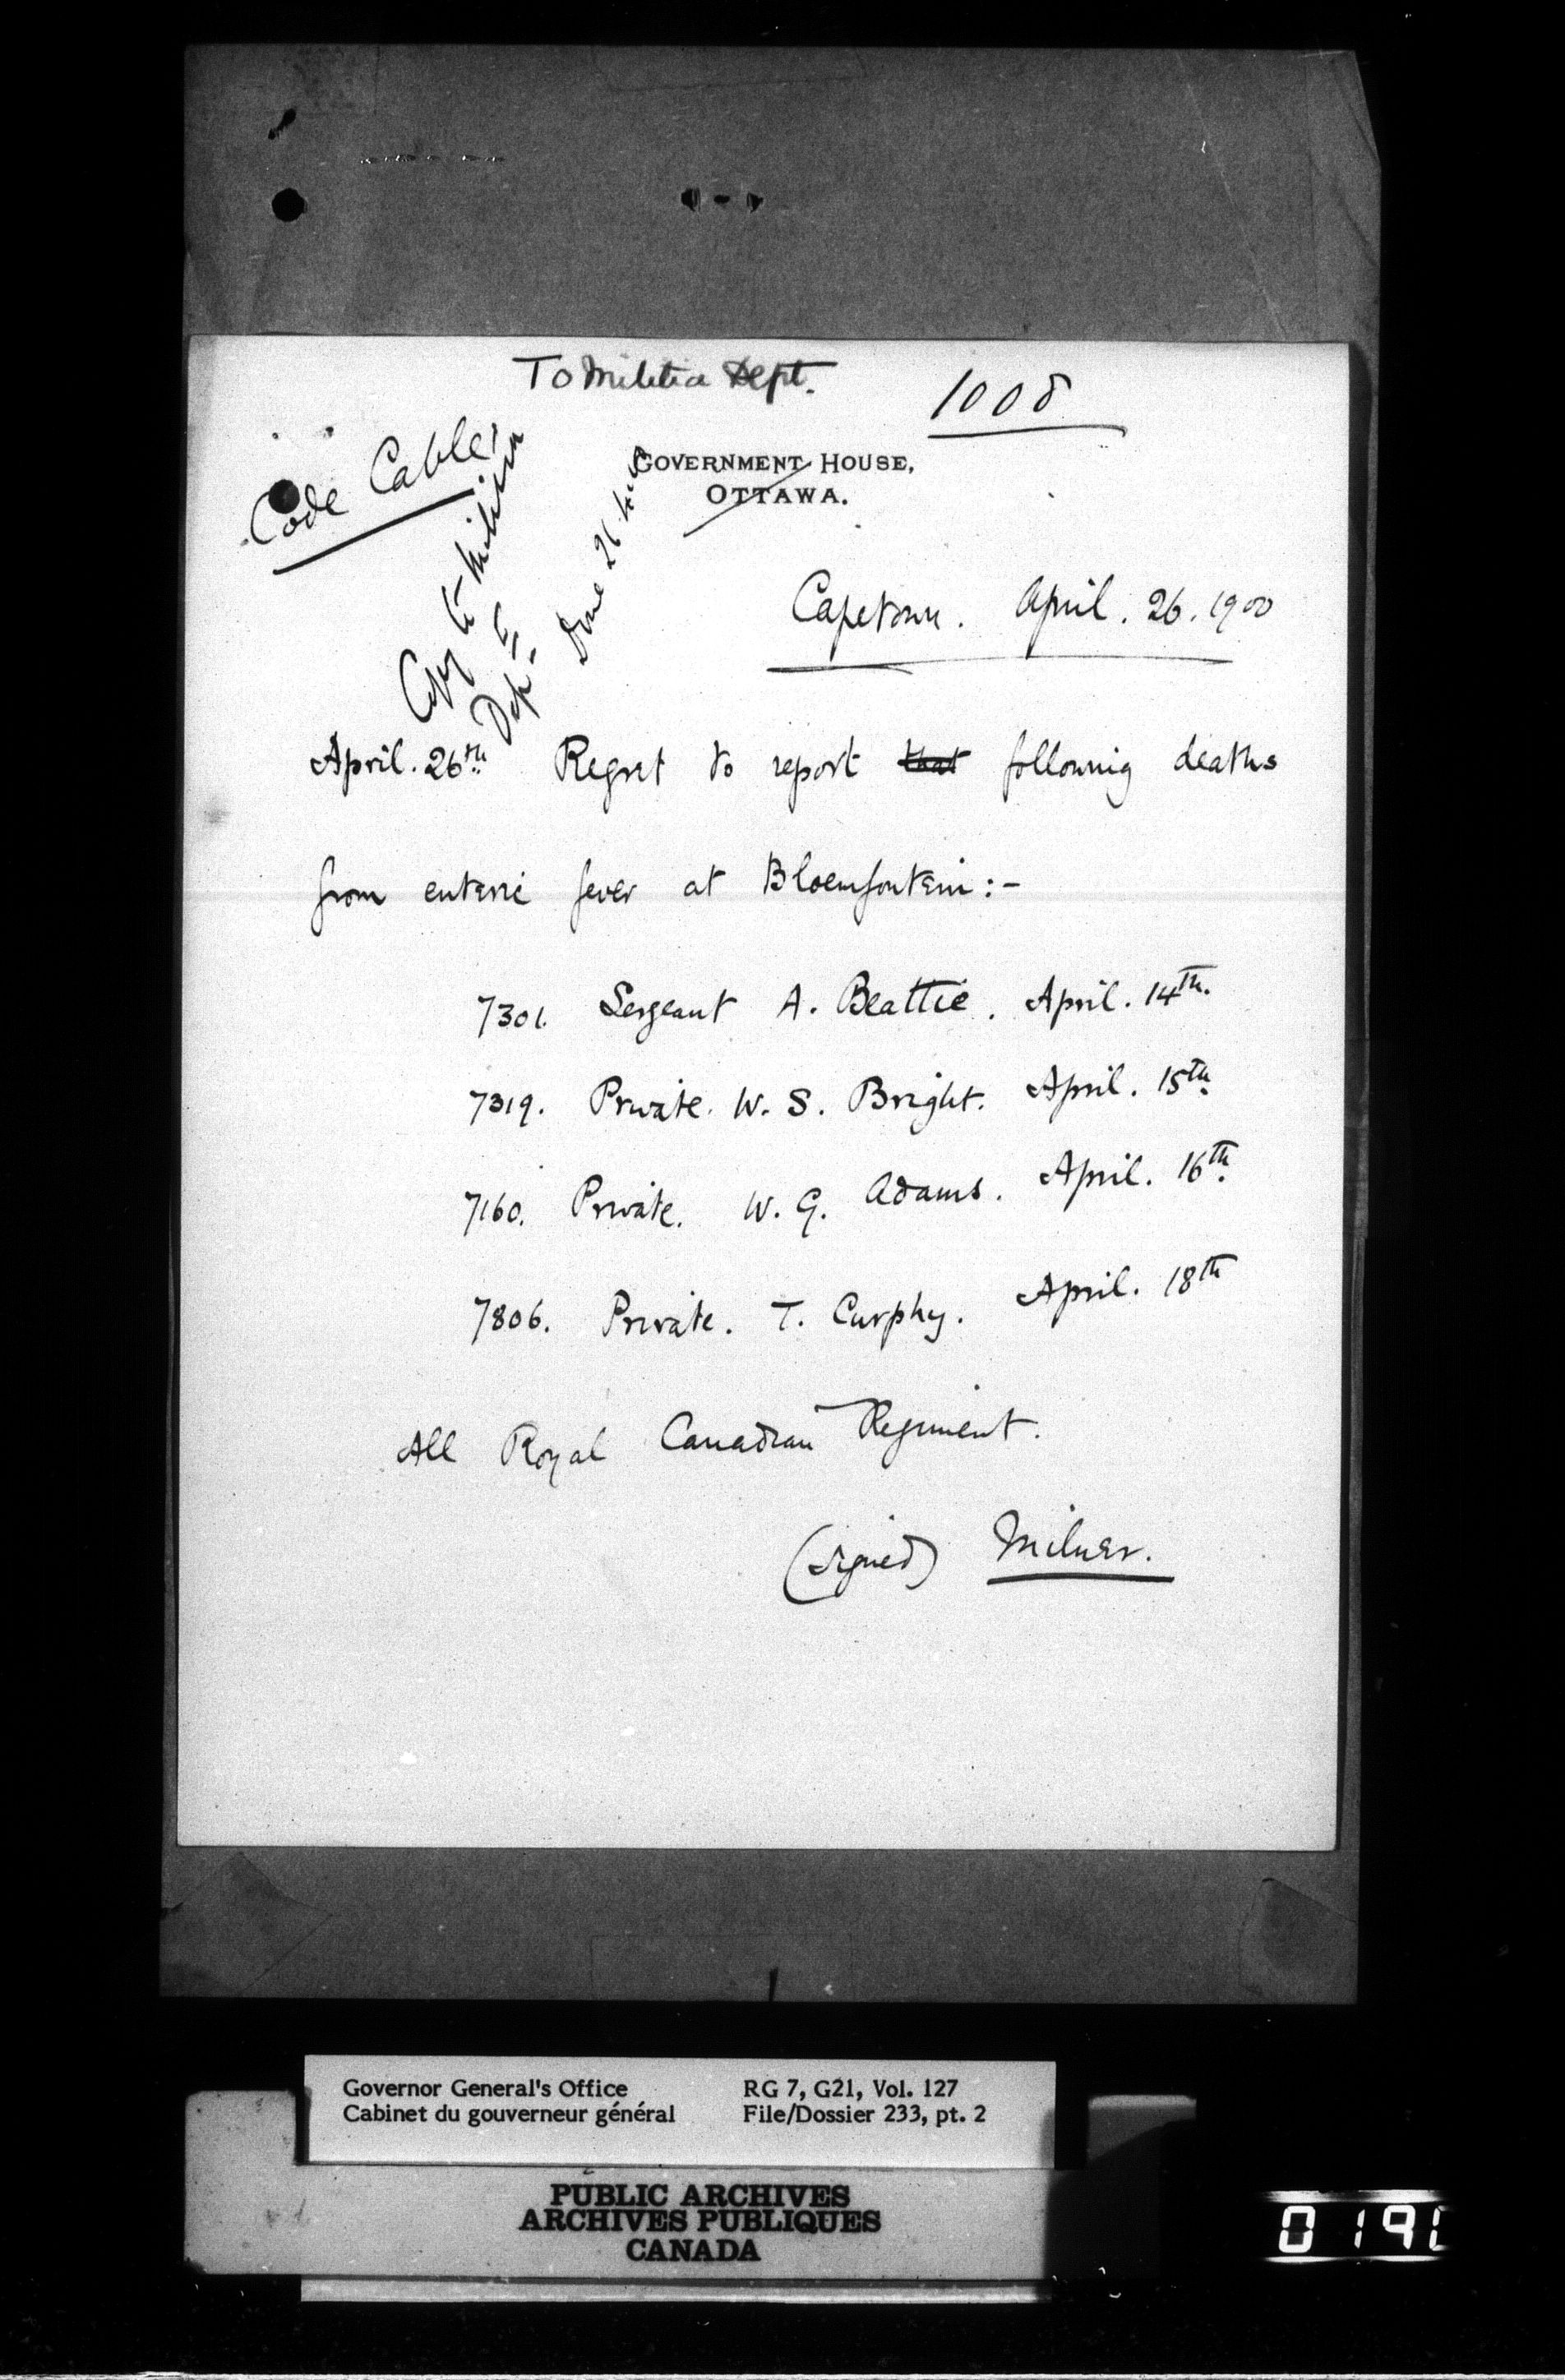 To Militia Dept.
1008
Code Cable
Copy to Militia
Dept.
Done 26
GOVERNMENT HOUSE,
OTTAWA.
Capetown. April. 26. 1900
April. 26th Regret to report that following deaths
from enteric fever at Bloemfontein:-
7301. Sergeant A. Beattie. April. 14th.
7319. Private. W. S. Bright. April. 15th.
7160. Private. W. G. Adams. April. 16th.
7806. Private. T. Curphy. April. 18th
All Royal Canadian Regiment.
(signed) Milner.
Governor General's Office RG 7, G21, Vol. 127
Cabinet du gouverneur général File/Dossier 233, pt. 2
PUBLIC ARCHIVES
ARCHIVES PUBLIQUES
CANADA
0191